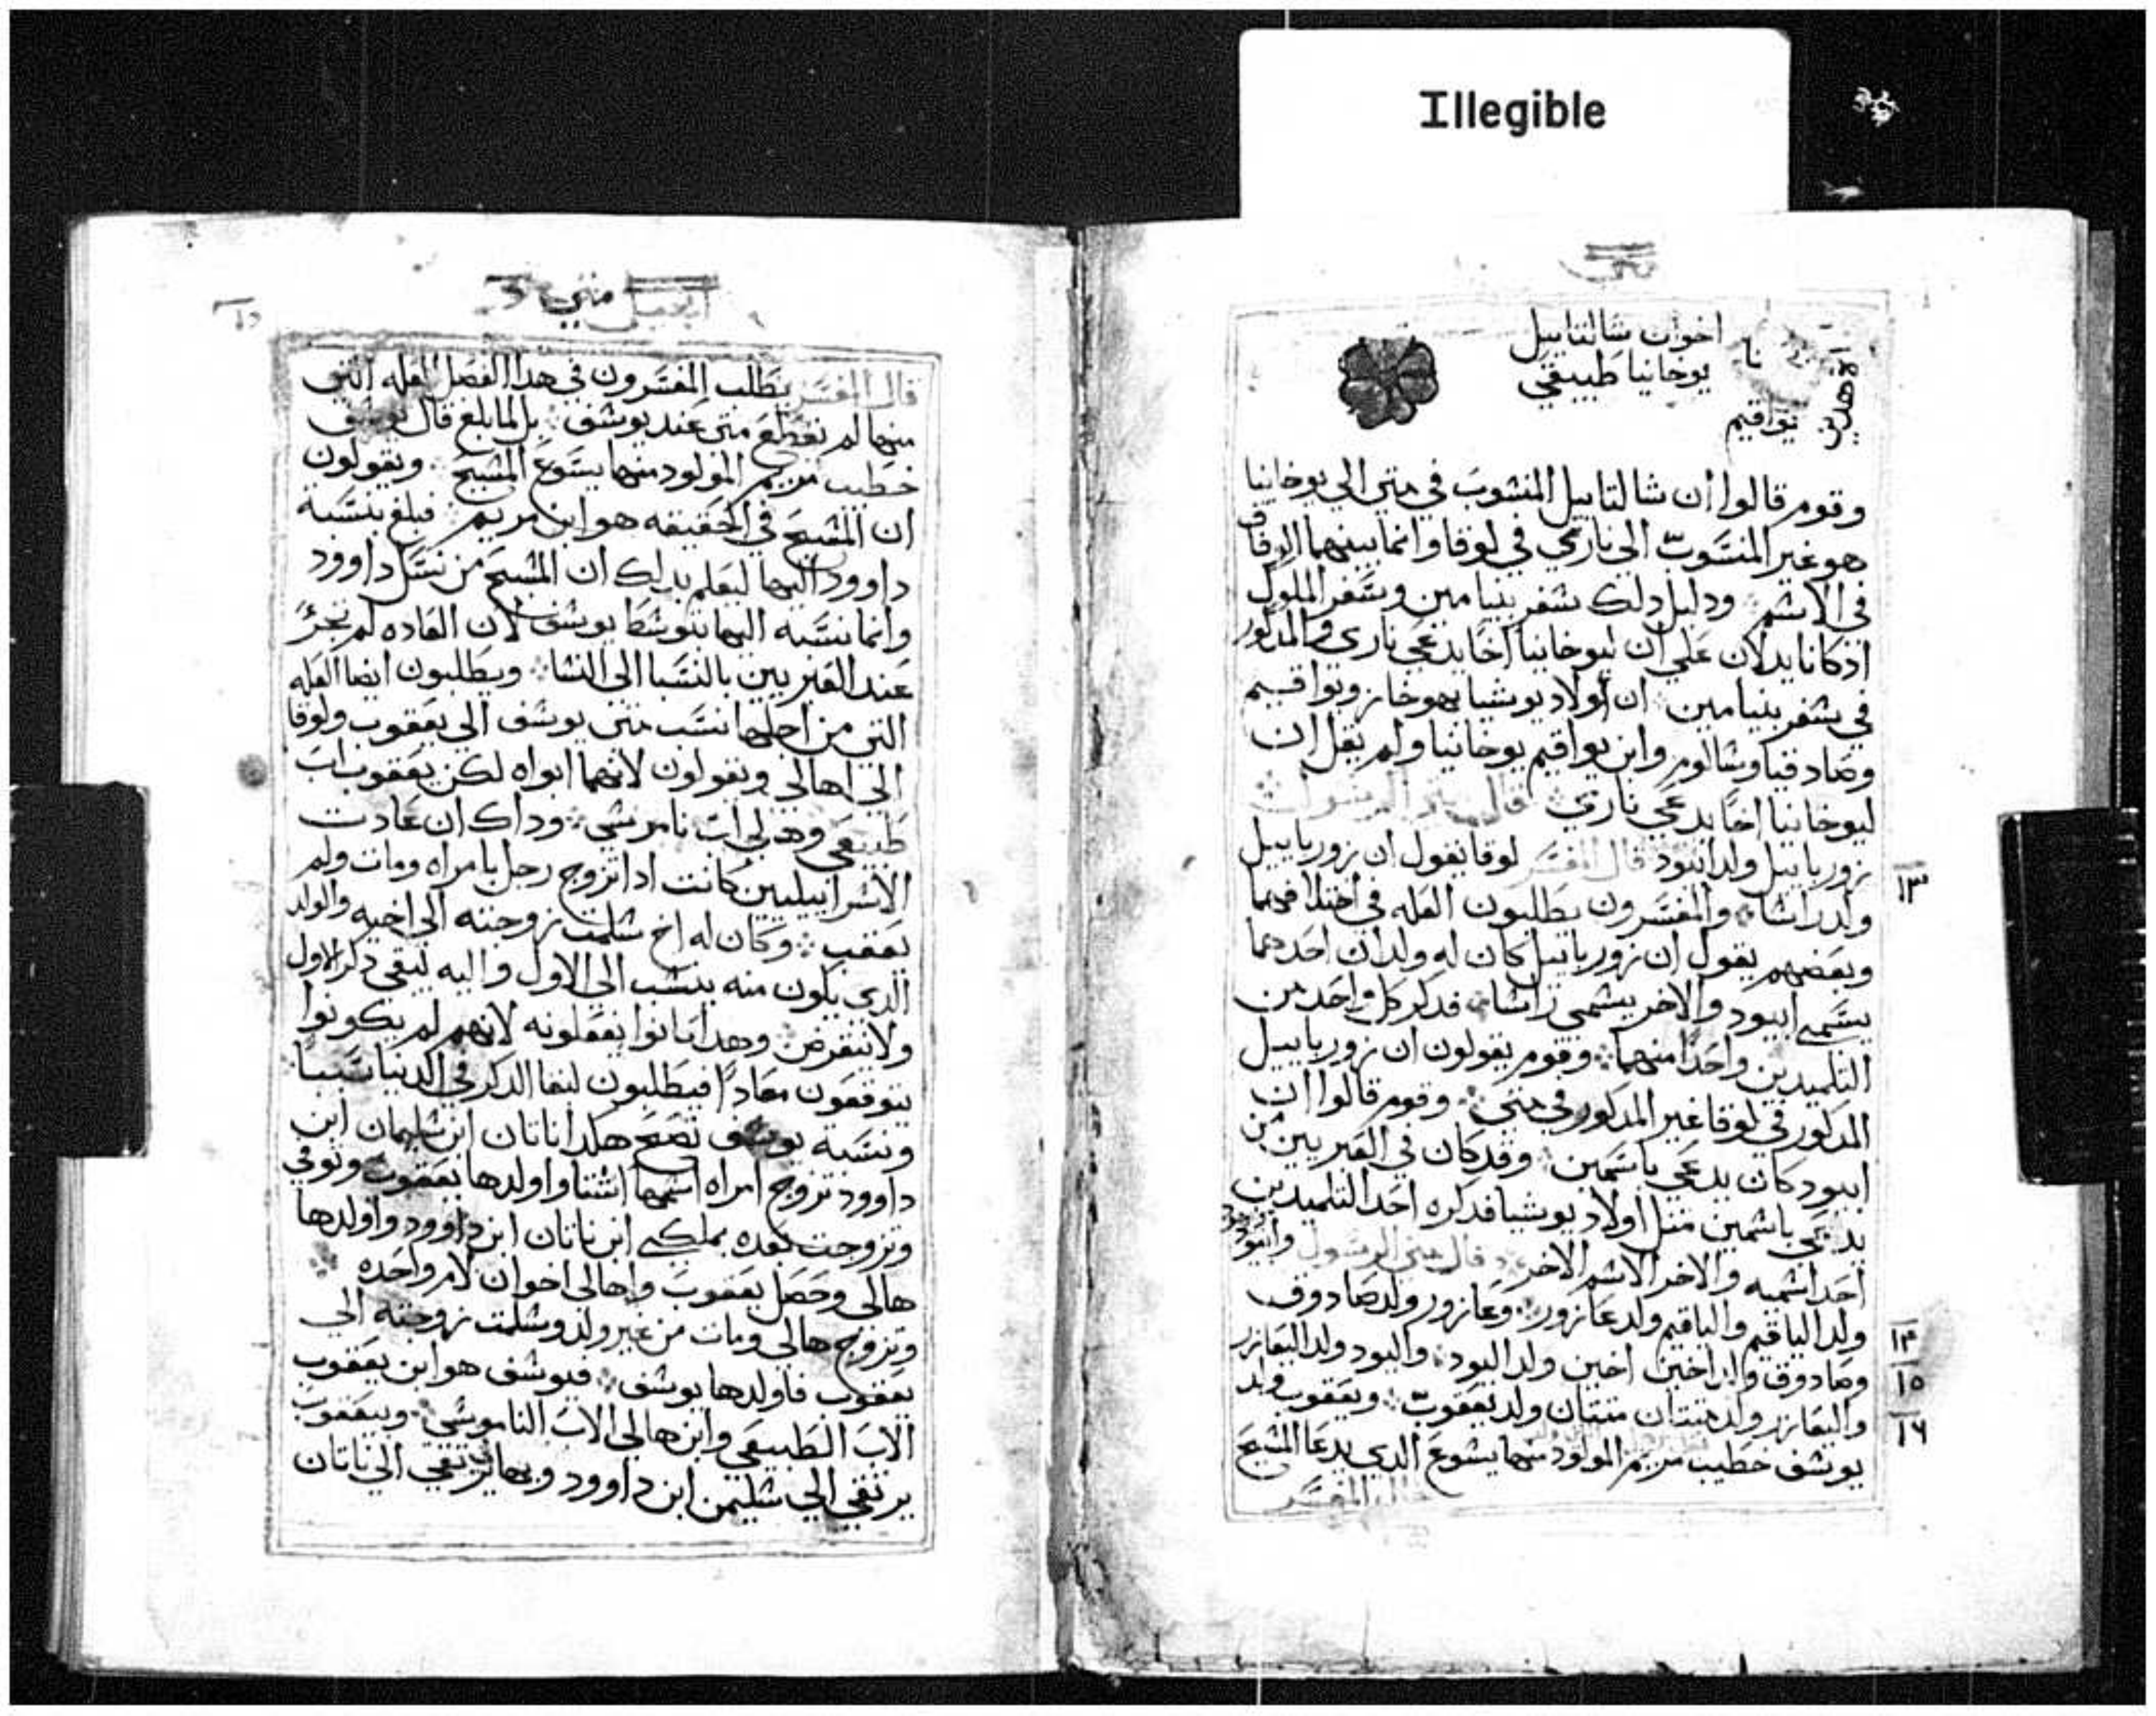 Illegible
متي
اخوان شالتاييل
نا
يوخانيا طبيعي
يواقيم
وقوم قالوا ان شالتاييل المنسوب في متي الي يوخانيا
هو غير المنسوب الي ناري في لوقا وانما بينهما الوفاق
في الاسم ودليل دلك سفر بنيامين وسفر الملوك
اذ كانا يدلان علي ان ليوخانيا اخا يدعي ناري والمدكور
في سفر بنيامين ان اولاد يوشيا يهوخاز ويواقيم
وصادقيا وشالوم وابن يواقيم يوخانيا ولم يقل ان
ليوخانيا اخا يدعي ناري قال متي الرسول
زورباييل ولد ابيود قال المفسر لوقا يقول ان زورباييل
١٣
ولد راسا والمفسرون يطلبون العله في اختلافهما
وبعضهم يقول ان زورباييل كان له ولدان احدهما
يسمي ابيود والاخر يسمي راسا فدكر كل واحد من
التلميدين واحدا منهما وقوم يقولون ان زورباييل
المدكور في لوقا غير المدكور في متي وقوم قالوا ان
ابيود كان يدعي باسمين وقد كان في العبريين من
يدعي باسمين مثل اولاد يوشيا فدكره احد التلميدين
احد اسميه والاخر الاسم الاخر قال متي الرسول وابيود
ولد الياقيم والياقيم ولد عازور وعازور ولد صادوق
١٤
وصادوق ولد اخين اخين ولد اليود واليود ولد اليعازر
١٥
واليعازر ولد متتان متتان ولد يعقوب ويعقوب ولد
١٦
يوسف خطيب مريم المولود منها يشوع الدي يدعا المسيح
قال المفسر
انجيل متي
قال المفسر يطلب المفسرون في هدا الفصل العله التي
منها لم يقطع متي عند يوسف بل لما بلغ قال يوسف
خطيب مريم المولود منها يسوع المسيح ويقولون
ان المسيح في الحقيقه هو ابن مريم فبلغ بنسبه
داوود اليها ليعلم بدلك ان المسيح من نسل داوود
وانما نسبه اليها بتوسط يوسف لان العاده لم تجر
عند العبريين بالنسبا الي النسا ويطلبون ايضا العله
التي من اجلها نسب متي يوسف الي يعقوب ولوقا
الي اهالي ويقولون لانهما ابواه لكن يعقوب اب
طبيعي وهالي اب ناموسي وداك ان عادت
الاسراييليين كانت ادا تزوج رجل بامراه ومات ولم
يعقب وكان له اخ سلمت زوجته الي اخيه والولد
الدي يكون منه ينسب الي الاول واليه ليبقي دكر الاول
ولا ينقرض وهدا كانوا يفعلونه لانهم لم يكونوا
يتوقعون معادا فيطلبون لبقا الدكر في الدنيا سببا
ونسبه يوسف تصح هكدا ناتان ابن سليمان ابن
داوود تزوج امراه اسمها استا واولدها يعقوب وتوفي
وتزوجت بعده بملكي ابن ناتان ابن داوود واولدها
هالي وحصل يعقوب واهالي اخوان لام واحده
وتزوج هالي ومات من غير ولد وسلمت زوجته الي
يعقوب فاولدها يوسف فيوسف هو ابن يعقوب
الاب الطبيعي وابن هالي الاب الناموسي وبيعقوب
يرتقي الي سليمن ابن داوود وبهالي يرتقي الي ناتان